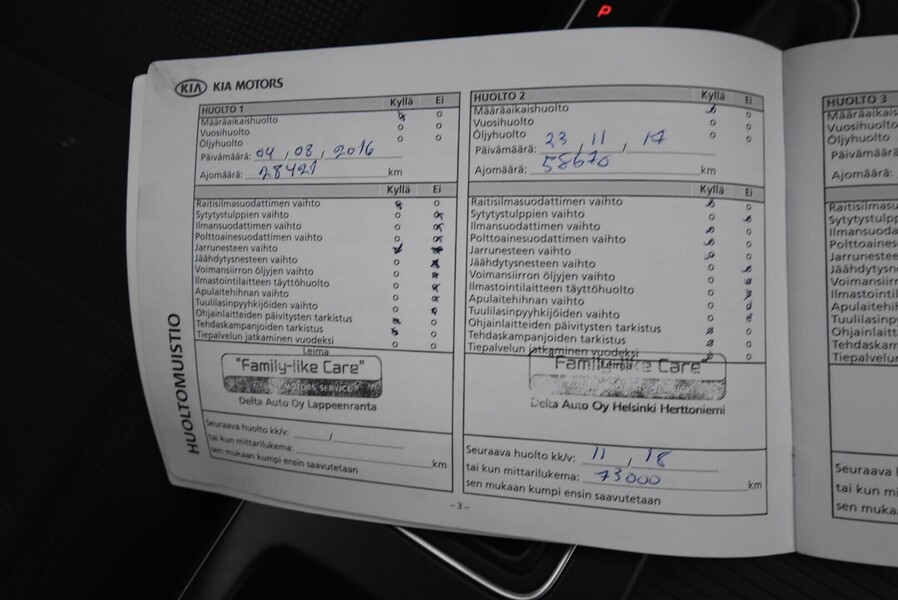 P
KIA KIA MOTORS
HUOLTO 1 Kyllä Ei
Määräaikaishuolto
Vuosihuolto
Öljyhuolto
Päivämäärä: 04, 08, 2016
Ajomäärä: 28421 km
Kyllä Ei
Raitisilmasuodattimen vaihto
Sytytystulppien vaihto
Ilmansuodattimen vaihto
Polttoainesuodattimen vaihto
Jarrunesteen vaihto
Jäähdytysnesteen vaihto
Voimansiirron öljyjen vaihto
Ilmastointilaitteen täyttöhuolto
Apulaitehihnan vaihto
Tuulilasinpyyhkijöiden vaihto
Ohjainlaitteiden päivitysten tarkistus
Tehdaskampanjoiden tarkistus
Tiepalvelun jatkaminen vuodeksi
Leima
"Family-like Care"
MOTORS SERVICE
Delta Auto Oy Lappeenranta
Seuraava huolto kk/v: /
tai kun mittarilukema: km
sen mukaan kumpi ensin saavutetaan
HUOLTOMUISTIO
HUOLTO 2 Kyllä Ei
Määräaikaishuolto
Vuosihuolto
Öljyhuolto
Päivämäärä: 23, 11, 17
Ajomäärä: 58670 km
Kyllä Ei
Raitisilmasuodattimen vaihto
Sytytystulppien vaihto
Ilmansuodattimen vaihto
Polttoainesuodattimen vaihto
Jarrunesteen vaihto
Jäähdytysnesteen vaihto
Voimansiirron öljyjen vaihto
Ilmastointilaitteen täyttöhuolto
Apulaitehihnan vaihto
Tuulilasinpyyhkijöiden vaihto
Ohjainlaitteiden päivitysten tarkistus
Tehdaskampanjoiden tarkistus
Tiepalvelun jatkaminen vuodeksi
Leima
"Family-like Care"
Delta Auto Oy Helsinki Herttoniemi
Seuraava huolto kk/v: 11, 18
tai kun mittarilukema: 73000 km
sen mukaan kumpi ensin saavutetaan
- 3 -
HUOLTO 3
Määräaikais
Vuosihuolto
Öljyhuolto
Päivämäärä:
Ajomäärä:
Raitisilmasu
Sytytystulpp
Ilmansuoda
Polttoaines
Jarruneste
Jäähdytysn
Voimansiir
Ilmastointi
Apulaitehi
Tuulilasinp
Ohjainlait
Tehdaskam
Tiepalvelu
Seuraava
tai kun mi
sen muka